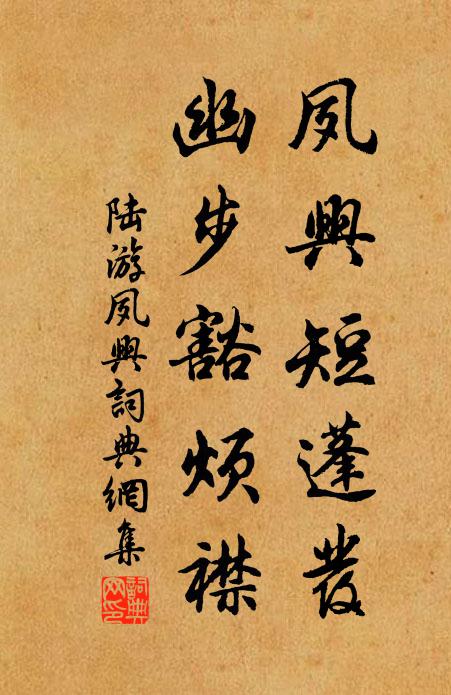 夙興短蓬發
幽步豁煩襟
陆游夙興詞典網集
詞典网印